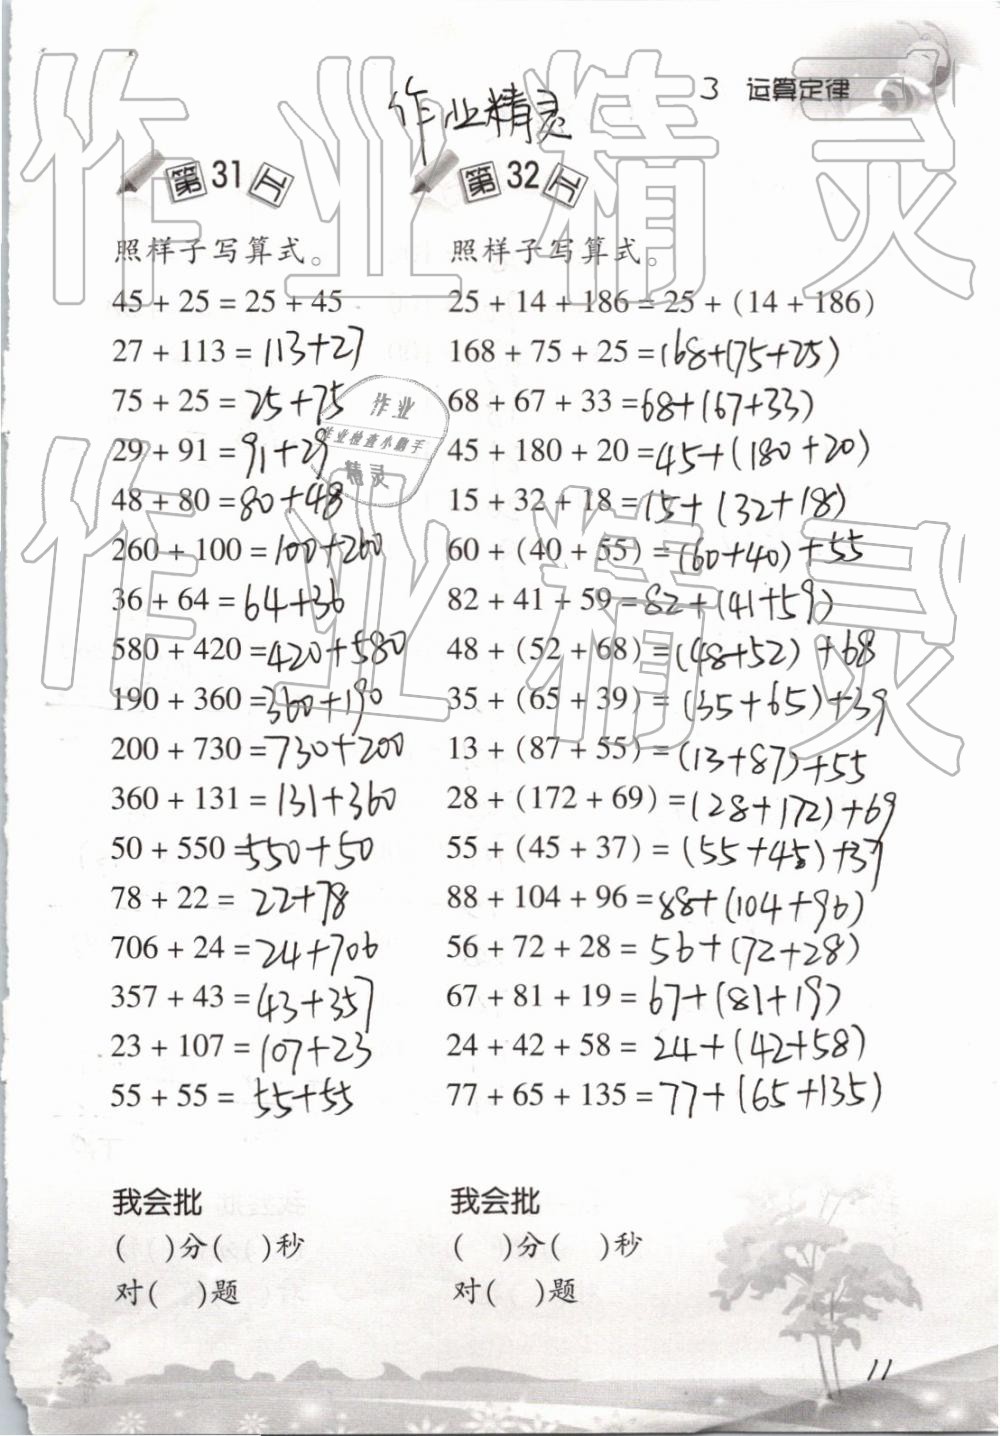 3 运算定律
作业精灵
第31页
照样子写算式。
45 + 25 = 25 + 45
27 + 113 = 113+27
75 + 25 = 25+75
29 + 91 = 91+29
48 + 80 = 80+48
260 + 100 = 100+260
36 + 64 = 64+36
580 + 420 = 420+580
190 + 360 = 360+190
200 + 730 = 730+200
360 + 131 = 131+360
50 + 550 = 550+50
78 + 22 = 22+78
706 + 24 = 24+706
357 + 43 = 43+357
23 + 107 = 107+23
55 + 55 = 55+55
我会批
( )分( )秒
对( )题
第32页
照样子写算式。
25 + 14 + 186 = 25 + (14 + 186)
168 + 75 + 25 = 168+(75+25)
68 + 67 + 33 = 68+(67+33)
45 + 180 + 20 = 45+(180+20)
15 + 32 + 18 = 15+(32+18)
60 + (40 + 55) = (60+40)+55
82 + 41 + 59 = 82+(41+59)
48 + (52 + 68) = (48+52)+68
35 + (65 + 39) = (35+65)+39
13 + (87 + 55) = (13+87)+55
28 + (172 + 69) = (28+172)+69
55 + (45 + 37) = (55+45)+37
88 + 104 + 96 = 88+(104+96)
56 + 72 + 28 = 56+(72+28)
67 + 81 + 19 = 67+(81+19)
24 + 42 + 58 = 24+(42+58)
77 + 65 + 135 = 77+(65+135)
我会批
( )分( )秒
对( )题
作业
作业检查小助手
精灵
作业精灵
作业精灵
11